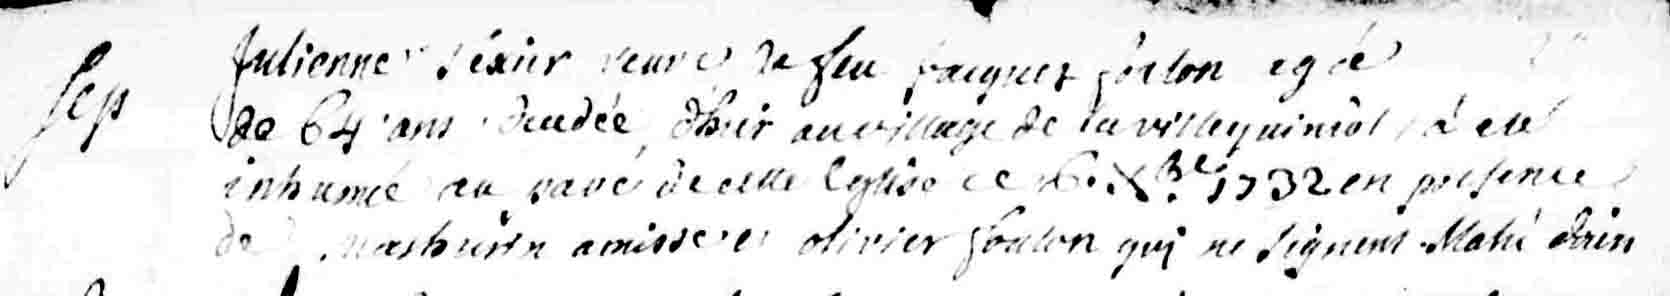 Sep Julienne Texier veuve de feu Jacques foulon agée
de 64 ans decedée d'hier au village de la villeguimôt a été
inhumée au pavé de cette Eglise ce 6. Xbre 1732 en presence
de Mathurin amisse et olivier foulon qui ne signent. Mahé doien